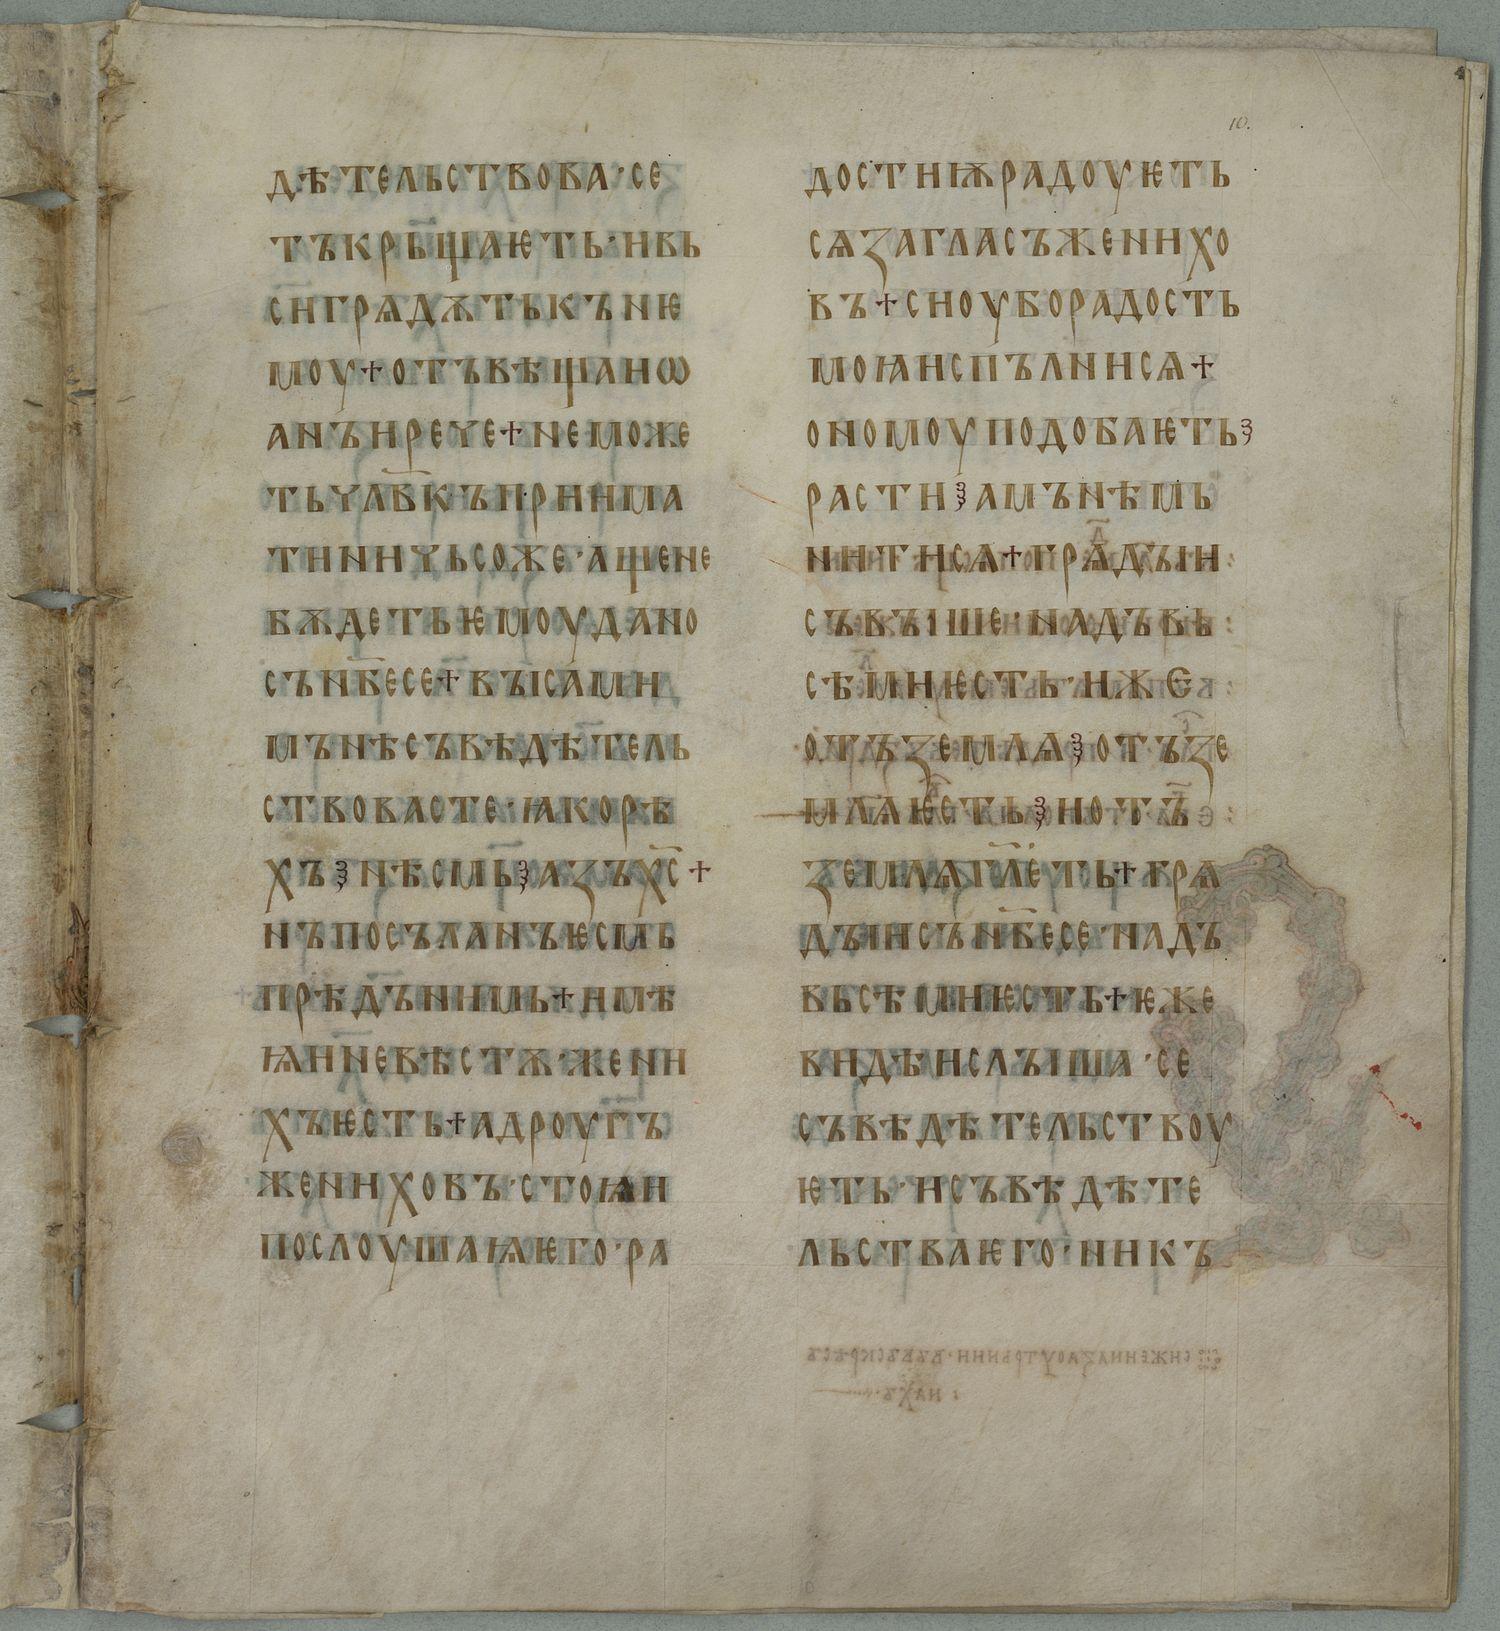 10.
дѣтельствова·се
тъкрьщаѥть·ивь
сиградѫтькънѥ
моу+отъвѣщаиѡ
анъирече+неможе
тьчл҃вкъприима
тиничьсоже·ащене
бѫдетьѥмоудано
сън҃бесе+въісами
мънѣсъвѣдѣтель
ствовасте·ꙗкорѣ
хъꙁнѣсмьꙁазъх҃с+
нъпосъланъѥсмь
прѣдъниимь+имѣ
ꙗиневѣстѫ·жени
хъѥсть+адроугъ
жениховъ·стоꙗи
послоушаꙗѥго·ра
достиѭрадоуѥть
сѧзагласъженихо
въ+синоуборадость
моꙗиспълнисѧ+
ономоуподобаѥтьꙁ
растиꙁамънѣмь
нитисѧ+грѧдъіи
съвъіше·надъвь
сѣмиѥсть·иже
отъземлѧꙁотъзе
млѧѥстьꙁиотъ
землѧгл҃еть+грѧ
дъіисън҃бесе·надъ
вьсѣмиѥсть+ѥже
видѣислъіша·се
съвѣдѣтельствоу
ѥть·исъвѣдѣте
льстваѥго·никъ